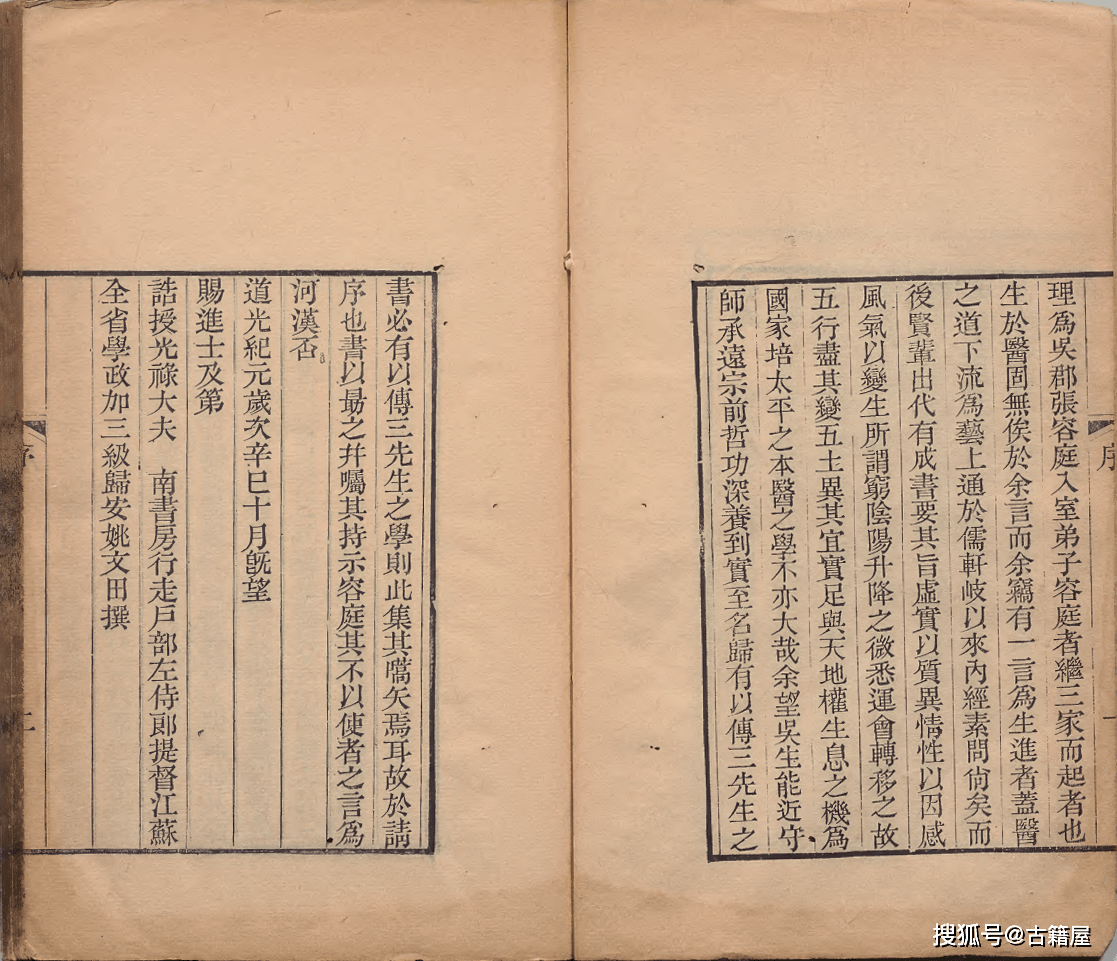 理爲吳郡張容庭入室弟子容庭者繼三家而起者也
生於醫固無俟於余言而余竊有一言爲生進者蓋醫
之道下流爲藝上通於儒軒岐以來內經素問尙矣而
後賢輩出代有成書要其旨虛實以質異情性以因感
風氣以變生所謂窮陰陽升降之微悉運會轉移之故
五行盡其變五土異其宜實足與天地權生息之機爲
國家培太平之本醫之學不亦大哉余望吳生能近守
師承遠宗前哲功深養到實至名歸有以傳三先生之
序
一
書必有以傳三先生之學則此集其嚆矢焉耳故於請
序也書以勗之幷囑其持示容庭其不以使者之言爲
河漢否
道光紀元歲次辛巳十月旣望
賜進士及第
誥授光祿大夫 南書房行走戶部左侍郎提督江蘇
全省學政加三級歸安姚文田撰
序
二
搜狐号@古籍屋